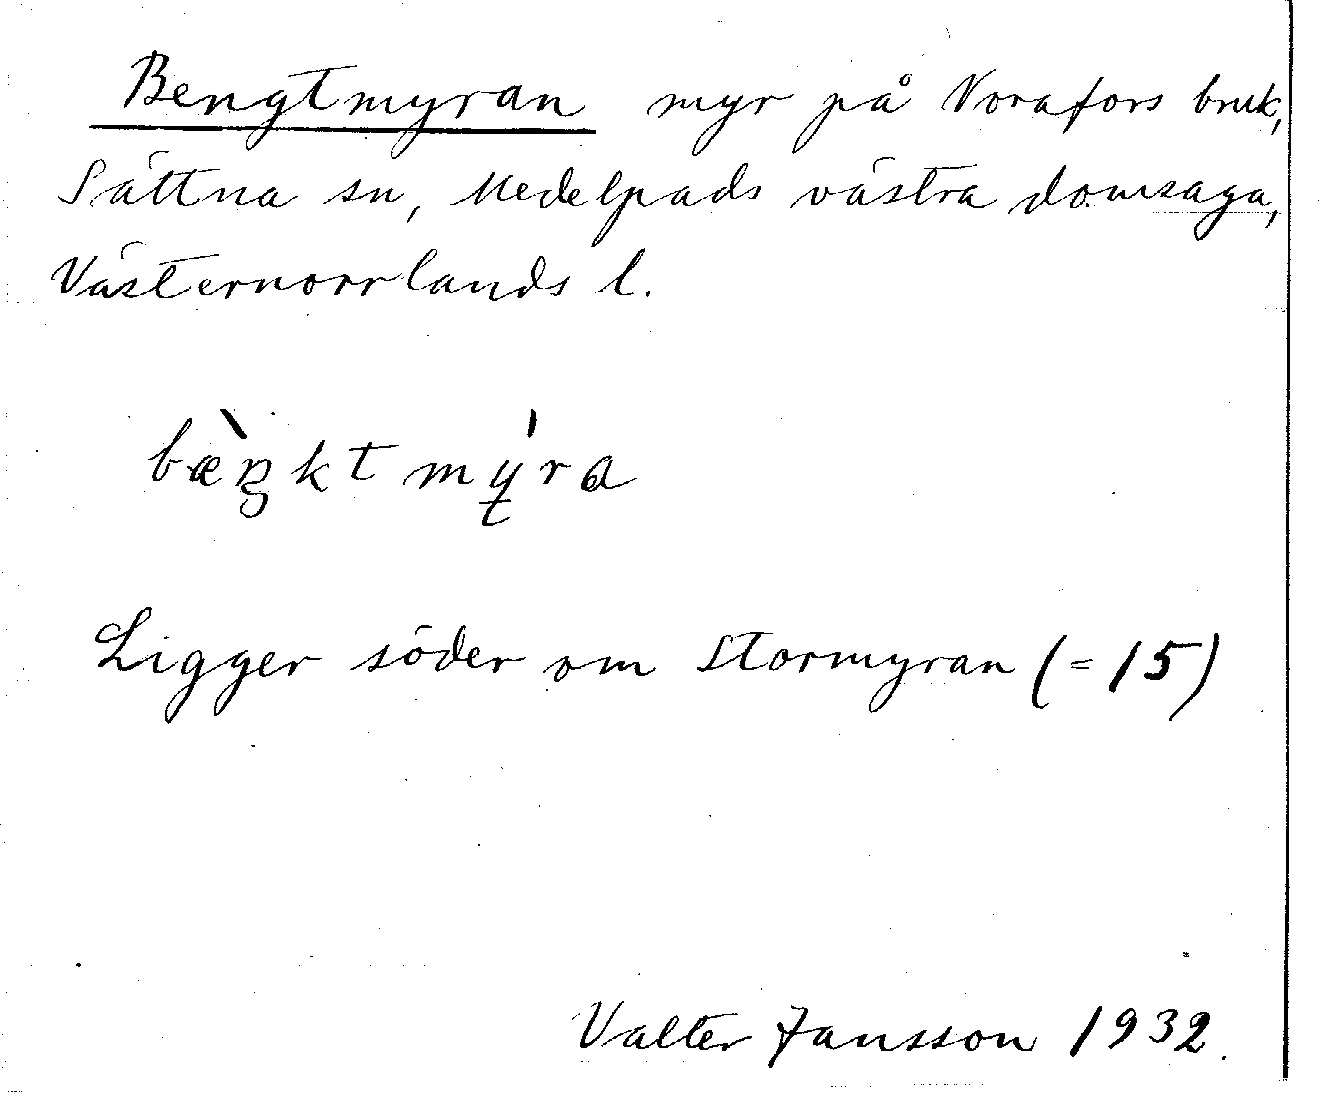 Bengtmyran myr på Vorafors bruk,
Sättna sn, Medelpads västra domsaga,
Västernorrlands l.
bæ̀ŋktmýra
Ligger söder om Stormyran (=15)
Valter Jansson 1932.